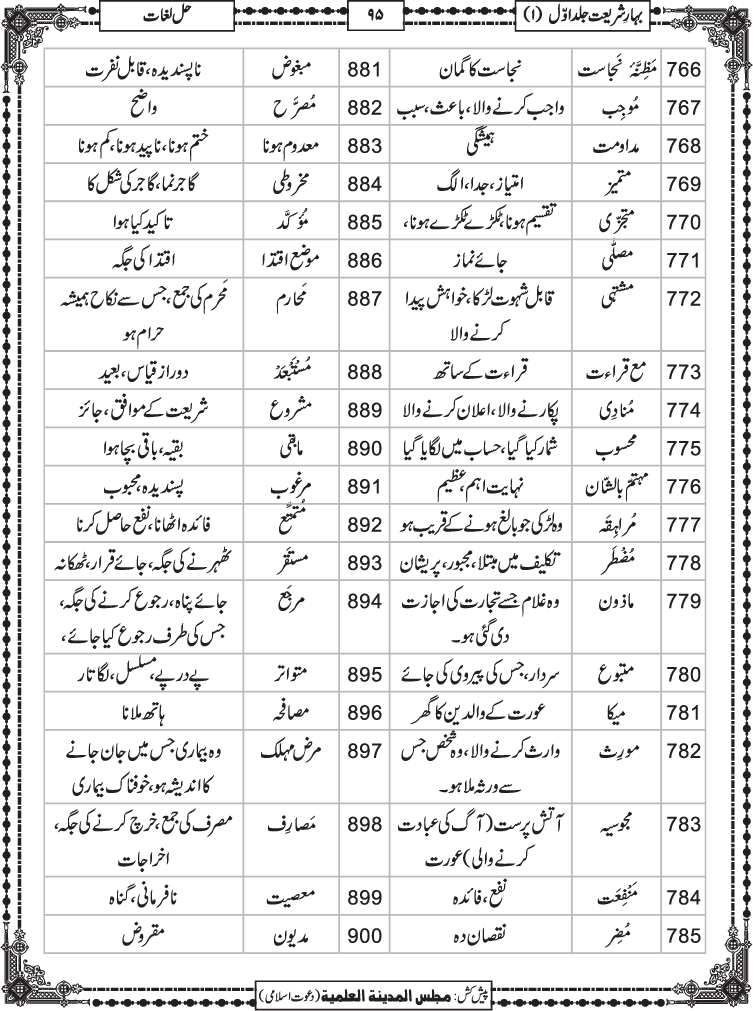 بہارِشریعت جلد اوّل (۱) ۹۵ حل لغات
766 مَظِنَّۂ نَجاست نجاست کا گمان 881 مبغوض ناپسندیدہ، قابل نفرت
767 مُوجِب واجب کرنے والا، باعث، سبب 882 مُصرَّح واضح
768 مداومت ہمیشگی 883 معدوم ہونا ختم ہونا، ناپید ہونا، کم ہونا
769 متمیز امتیاز، جدا، الگ 884 مخروطی گاجر نما، گاجر کی شکل کا
770 متجزّی تقسیم ہونا، ٹکڑے ٹکڑے ہونا، 885 مُؤکَّد تاکید کیا ہوا
771 مصلّٰی جائے نماز 886 موضع اقتدا اقتدا کی جگہ
772 مشتہی قابل شہوت لڑکا، خواہش پیدا 887 مَحارم مَحرم کی جمع، جس سے نکاح ہمیشہ
کرنے والا حرام ہو
773 مع قراءت قراءت کے ساتھ 888 مُسْتَبْعَدْ دور از قیاس، بعید
774 مُنادِی پکارنے والا، اعلان کرنے والا 889 مشروع شریعت کے موافق، جائز
775 محسوب شمار کیا گیا، حساب میں لگایا گیا 890 مابقی بقیہ، باقی بچا ہوا
776 مہتم بالشّان نہایت اہم، عظیم 891 مرغوب پسندیدہ، محبوب
777 مُراہِقہ وہ لڑکی جو بالغ ہونے کے قریب ہو 892 مُتمتِّع فائدہ اٹھانا، نفع حاصل کرنا
778 مُضْطَر تکلیف میں مبتلا، مجبور، پریشان 893 مستقَر ٹھہرنے کی جگہ، جائے قرار، ٹھکانہ
779 ماذون وہ غلام جسے تجارت کی اجازت 894 مرجَع جائے پناہ، رجوع کرنے کی جگہ،
دی گئی ہو۔ جس کی طرف رجوع کیا جائے،
780 متبوع سردار، جس کی پیروی کی جائے 895 متواتر پے درپے، مسلسل، لگا تار
781 میکا عورت کے والدین کا گھر 896 مصافحہ ہاتھ ملانا
782 مورِث وارث کرنے والا، وہ شخص جس 897 مرض مہلک وہ بیماری جس میں جان جانے
سے ورثہ ملا ہو۔ کا اندیشہ ہو، خوفناک بیماری
783 مجوسیہ آتش پرست (آگ کی عبادت 898 مَصارِف مصرف کی جمع، خرچ کرنے کی جگہ،
کرنے والی) عورت اخراجات
784 مَنْفِعَت نفع، فائدہ 899 معصیت نافرمانی، گناہ
785 مُضِر نقصان دہ 900 مدیون مقروض
پیش کش: مجلس المدینۃ العلمیۃ (دعوت اسلامی)